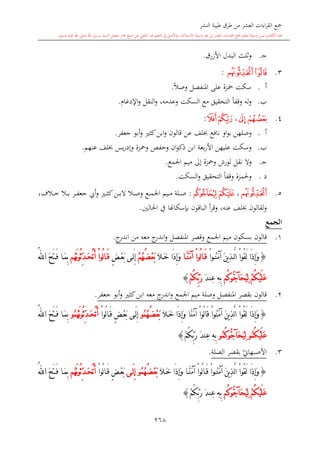 جمع القراءات العشر من طرق طيبة النشر
جـ. وثلث البدل الأزرق.
٣. قَالُوٓا۟ أَتُحَدِّثُونَهُم :
أ . سكت حمزة على المنفصل وصلاً.
ب. وله وقفاً التحقيق مع السكت وعدمه، والنقل والإدغام.
٤. بَعْضُهُمْ إِلَىٰ ، رَبِّكُمْ أَفَلَا:
أ . وصلهن بواو نافع بخلف عن قالون وابن كثير وأبو جعفر.
ب. وسكت عليهن الأربعة ابن ذكوان وحفص وحمزة وإدريس بخلف عنهم.
جـ. ولا نقل لورش وحمزة إلى ميم الجمع.
د . ولحمزة وقفاً التحقيق والسكت.
٥. أَتُحَدِّثُونَهُم ، عَلَيْكُمْ لِيُحَآجُّوكُم : صلة ميم الجمع وصلاً لابن كثير وأبي جعفر بلا خلاف،
ولقالون بخلف عنه، وقرأ الباقون بإسكانها في الحالين.
الجمع
١. قالون بسكون ميم الجمع وقصر المنفصل واندرج معه من اندرج.
﴿ وَإِذَا لَقُوا۟ ٱلَّذِينَ ءَامَنُوا۟ قَالُوٓا۟ ءَامَنَّا وَإِذَا خَلَا بَعْضُهُمْ إِلَىٰ بَعْضٍ قَالُوٓا۟ أَتُحَدِّثُونَهُم بِمَا فَتَحَ ٱللَّهُ
عَلَيْكُمْ لِيُحَآجُّوكُم بِهِۦ عِندَ رَبِّكُمْ ﴾
٢. قالون بقصر المنفصل وصلة ميم الجمع واندرج معه ابن كثير وأبو جعفر.
﴿ وَإِذَا لَقُوا۟ ٱلَّذِينَ ءَامَنُوا۟ قَالُوٓا۟ ءَامَنَّا وَإِذَا خَلَا بَعْضُهُمُو إِلَىٰ بَعْضٍ قَالُوٓا۟ أَتُحَدِّثُونَهُمُو بِمَا فَتَحَ ٱللَّهُ
عَلَيْكُمُو لِيُحَآجُّوكُمُو بِهِۦ عِندَ رَبِّكُمْ ﴾
٣. الأصبهانيّ بقصر الصلة.
﴿ وَإِذَا لَقُوا۟ ٱلَّذِينَ ءَامَنُوا۟ قَالُوٓا۟ ءَامَنَّا وَإِذَا خَلَا بَعْضُهُمُو إِلَىٰ بَعْضٍ قَالُوٓا۟ أَتُحَدِّثُونَهُم بِمَا فَتَحَ ٱللَّهُ
عَلَيْكُمْ لِيُحَآجُّوكُم بِهِۦ عِندَ رَبِّكُمْ ﴾
٢٦٨